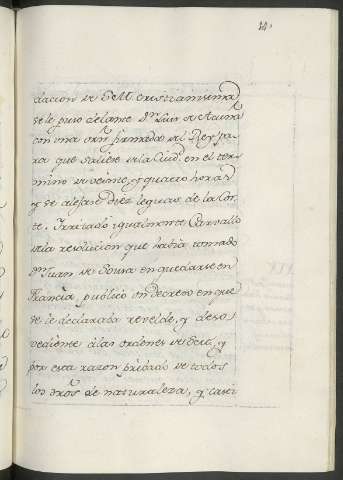 dacion de S. M. cristianisima
se le puso delante Dn. Luis de Acuña
con una orn. firmada del Rey pa-
ra que saliese de la Ciud. en el ter-
mino de veinte, y quatro horas
y se alejase diez leguas de la Cor-
te. Irritado igualmente Carvallo
de la resolucion que habia tomado
Dn. Juan de Sousa en quedarse en
Francia, publicó un Decreto en que
se le declaraba revelde, y deso-
vediente á las ordenes de Setª, y
por esta razon pribado de todos
los dros. de naturaleza, y casti